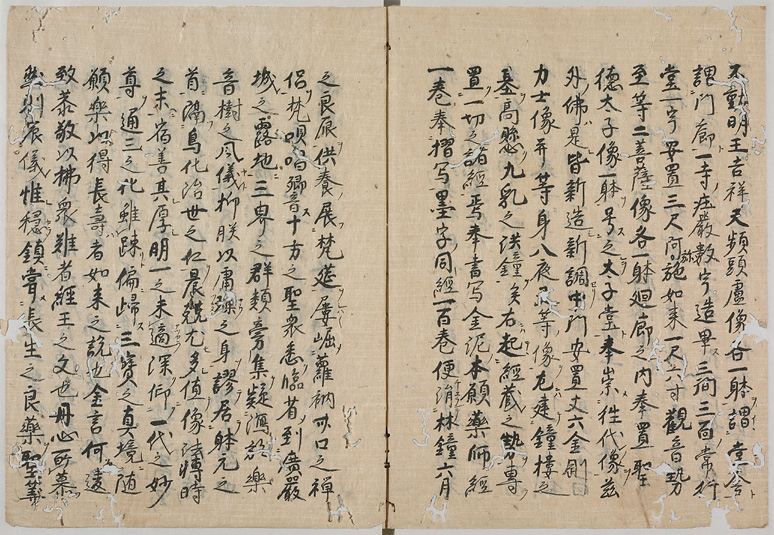 不動明王吉祥天頻頭盧像各一躰謂堂舎
謂門廊一寺庄嚴數宇造畢三間三面常行
堂一宇安置三尺阿弥施如来一尺八寸觀音勢
至等二菩薩像各一躰廻廊之内奉置聖
德太子像一躰号之太子堂奉崇往代像茲
外佛是皆新造新調中門安置丈六金剛
力士像并等身八夜叉等像左建鐘樓之
基高懸九乳之洪鐘矣右起經蔵之勢専
置一切之諸經焉奉書写金泥本願藥師經
一卷奉摺写墨字同經一百卷便淯林鐘六月
之良辰供養展梵筵屢崛蘿衲口之禅
侶梵唄唱響音十方之聖衆悉臨昔到廣嚴
城之露地三界之群類旁集疑漏於樂
音樹之風儀抑朕以庸之身謬居躰元之
首隔鳥化治世之仁最兢尤多值像法轉時
之末宿善其厚明一之未適深仰一代之妙
尊通三之礼雖疎偏歸三寳之真境随
願樂以得長壽者如来之説也金言何違
致恭敬以拂衆難者經王之文也丹心所慕
儀惟穏鎮甞長生之良藥聖